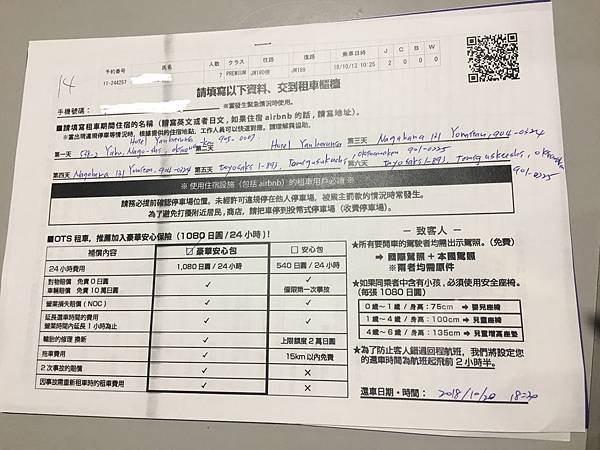 予約番号 氏名 人数 クラス 往路 復路 乗車日時 J C B W
11-244257 7 PREMIUM JW180便 JW189 18/10/13 10:25 2 0 0 0
14
請填寫以下資料、交到租車櫃檯
手機號碼： ※當發生緊急情況時使用。
■請填寫租車期間住宿的名稱（請寫英文或者日文，如果住宿 airbnb 的話，請寫地址）。
※當出現違規停車等情況時，根據提供的住宿地點，工作人員可以快速對應。請理解與協助。
第一天 第二天 Hotel 第三天 Nagahama 131 Yomitan, 904-0324
第四天 Nagahama 131 Yomitan, 904-0324 第五天 toyosaki 1-891, 第六天 toyosaki 1-891,
901-0225
※ 使用住宿設施（包括 airbnb）的租車用戶必讀 ※
請務必提前確認停車場位置。未經許可違規停在他人停車場，被雇主罰款的情況時常發生。
為了避免打擾附近居民，商店，請把車停到投幣式停車場（收費停車場）。
■OTS 租車，推薦加入豪華安心保險（1080 日圓 / 24 小時）！
補償內容 ☑豪華安心包 □安心包
24 小時費用 1,080 日圓 / 24 小時 540 日圓 / 24 小時
對物賠償 免費 0 日圓
車輛賠償 免費 10 萬日圓 ✓ 僅限第一次事故
營業損失賠償 (NOC) ✓ ✓
延長還車時間的費用
營業時間內延長 1 小時為止 ✓ ✓
輪胎的修理 換新 ✓ 上限額度 2 萬日圓
拖車費用 ✓ 15km 以內免費
2 次事故的賠償 ✓ ×
因事故需重新租車時的租車費用 ✓ ×
－ 致客人 －
★所有要開車的駕駛者均需出示駕照。（免費）
➡ 國際駕照 + 本國駕照
※兩者均需原件
★如果同乘者中含有小孩，必須使用安全座椅。
（每張 1080 日圓）
0 歲～1 歲 / 身高：75cm ➡ 嬰兒座椅
1 歲～4 歲 / 身高：100cm ➡ 兒童座椅
4 歲～6 歲 / 身高：135cm ➡ 兒童增高座墊
★為了防止客人錯過回程航班，我們將設定您
的還車時間為航班起飛前 2 小時半。
還車日期・時間： 2018/10/20 18:30